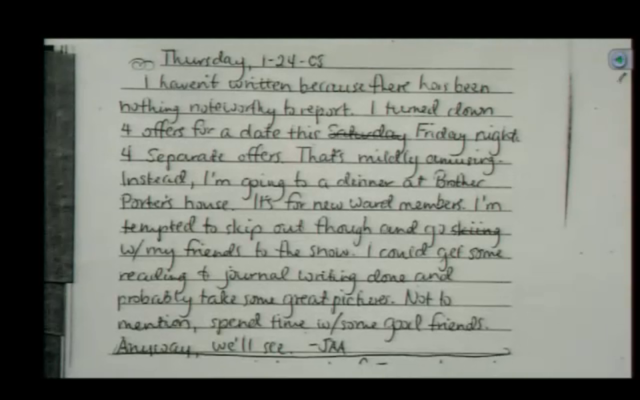 Thursday, 1-24-08
I haven't written because there has been
nothing noteworthy to report. I turned down
4 offers for a date this Saturday Friday night.
4 Separate offers. That's mildly amusing.
Instead, I'm going to a dinner at Brother
Porter's house. It's for new ward members. I'm
tempted to skip out though and go skiing
w/my friends to the snow. I could get some
reading & journal writing done and
probably take some great pictures. Not to
mention, spend time w/some good friends.
Anyway, we'll see. -JAA